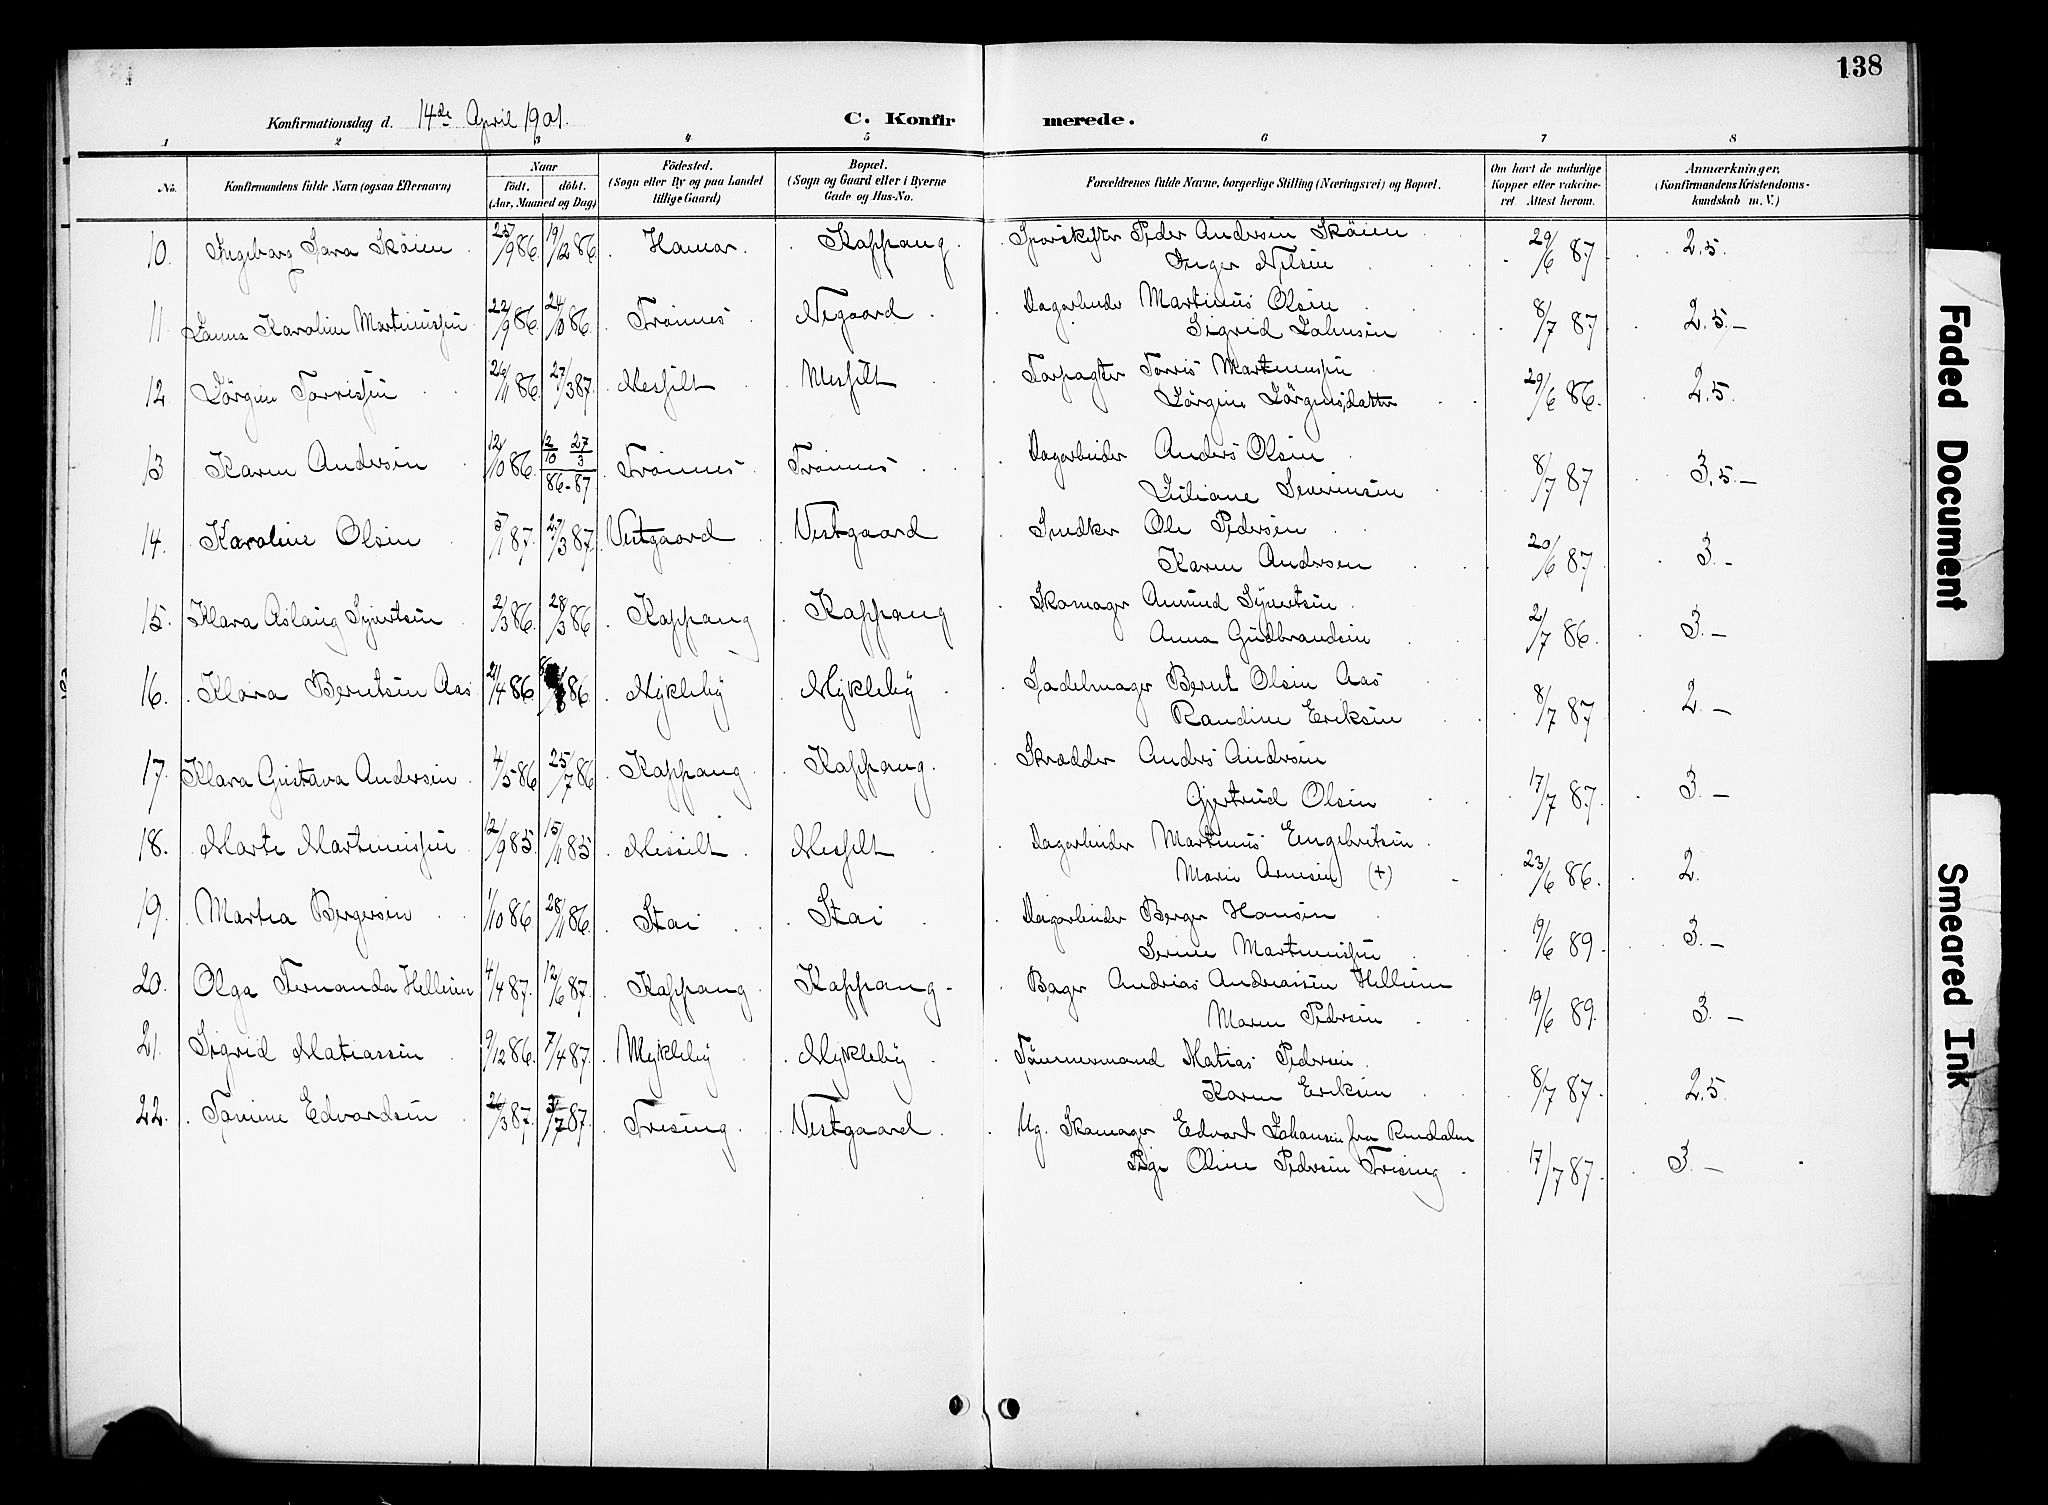 138
Konfirmationsdag d. 14de April 1901. C. Konfirmerede.
1 2 3 4 5 6 7 8
No. Konfirmandens fulde Navn (ogsaa Efternavn) Naar födt. döbt. (Aar, Maaned og Dag) Födested. (Sogn eller By og paa Landet tillige Gaard) Bopæl. (Sogn og Gaard eller i Byerne Gade og Hus-No. Forældrenes fulde Navne, borgerlige Stilling (Næringsvei) og Bopæl. Om havt de naturlige Kopper eller vakcineret. Attest herom. Anmærkninger, (Konfirmandens Kristendomskundskab m. V.)
10. Ingeborg Sara Sköien 25/9 86. 19/12 86. Hamar. Koppang. Sporskifter Peder Andersen Sköien
Inger Nilsen 29/6 87. 2.5.
11. Janna Karoline Martinussen 22/9 86. 24/10 86. Trönnes Negaard Dagarbeider Martinus Olsen
Sigrid Johnsen 8/7 87 2.5.-
12. Jörgine Torrissen 26/11 86. 27/3 87. Messelt Messelt Forpagter Torris Martinussen
Jörgine Jörgensdatter 29/6 86. 2.5.
13 Karen Andersen 12/10 86. 12/10 27/3 86-87 Trönnes Trönnes Dagarbeider Anders Olsen
Juliane Severinsen 8/7 87 3,5.-
14. Karoline Olsen 5/1 87. 27/3 87. Vestgaard Vestgaard Snedker Ole Pedersen
Karen Andersen 20/6 87. 3.-
15. Klara Aslaug Syvertsen 2/3 86. 28/3 86 Koppang Koppang Skomager Amund Syvertsen
Anna Gudbrandsen 2/7 86. 3.-
16. Klara Berntsen Aas 21/4 86 86. Mykleby Mykleby Sadelmager Bernt Olsen Aas
Randine Eriksen 8/7 87 2.-
17. Klara Gustava Andersen 4/5 86 25/7 86 Koppang Koppang. Skrædder Anders Andersen
Gjertrud Olsen 17/7 87. 3.-
18. Marte Martinussen 12/9 85 15/11 85 Messelt Messelt Dagarbeider Martinus Engebretsen
Marie Arnesen (+) 23/6 86. 2.
19. Martea Bergersen 1/10 86. 28/11 86. Stai Stai Dagarbeider Berger Hansen
Serine Martinussen 19/6 89. 3.-
20. Olga Fernanda Helleum 4/4 87. 12/6 87. Koppang Koppang. Bager Andreas Andreassen Helleum
Maren Pedersen 19/6 89. 3.-
21. Sigrid Matiassen 9/12 86. 7/4 87. Mykleby Mykleby Tömmermand Matias Pedersen.
Karen Eriksen 8/7 87. 2.5
22. Tomine Edvardsen 21/3 87. 31/7 87. Tresing. Vestgaard. Ug. Skomager Edvard Johansen fra Rendalen
Pige Oline Pedersen Tresing 17/7 87. 3.-
Faded Document
Smeared Ink